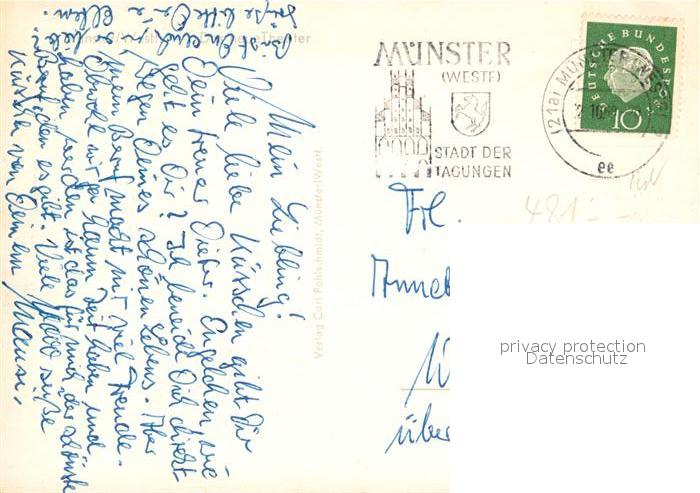 Mein Liebling!
Viele liebe Küsschen gibt Dir
Dein treuer Dieter. Engelchen, wie
geht es Dir? Ich beneide Dich direkt
wegen Deines schönen Lebens. Aber
mein Beruf macht mir viel Freude.
Obwohl wir ja kaum Zeit haben und
haben werden, ist das für mich der schönste
Beruf, den es gibt. Viele 1000 süße
Küsse von Deinem Mausi.
Grüße bitte
Eltern.
Theater
Verlag Carl Pohlschmidt, Münster/Westf.
MÜNSTER
(WESTF)
STADT DER
TAGUNGEN
(21a) MÜNSTER (WESTF)
ee
DEUTSCHE BUNDESPOST
10
481
Frl.
Annet
über
privacy protection
Datenschutz